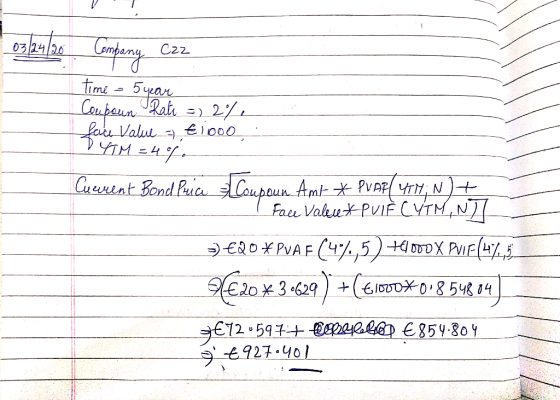 03/24/20 Company C22
time = 5 year
Coupoun Rate => 2%.
face Value => €1000
YTM = 4%.
Current Bond Price => [Coupoun Amt * PVAF(YTM, N) +
Face Value * PVIF (YTM, N)]
=> €20 * PVAF (4%, 5) + €1000 X PVIF (4%, 5
=> (€20 * 3.629) + (€1000 * 0.854804)
=> €72.597 + €854.804
=> €927.401